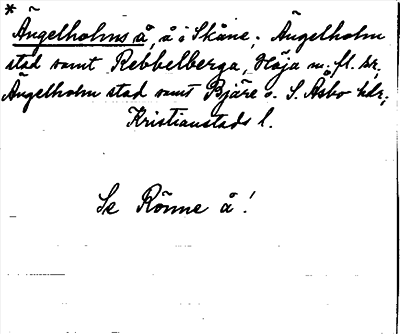 * Ängelholms å, å i Skåne; Ängelholm
stad samt Rebbelberga, Höja m. fl. snr,
Ängelholm stad samt Bjäre o. S. Åsbo hdr,
Kristianstads l.
Se Rönne å!